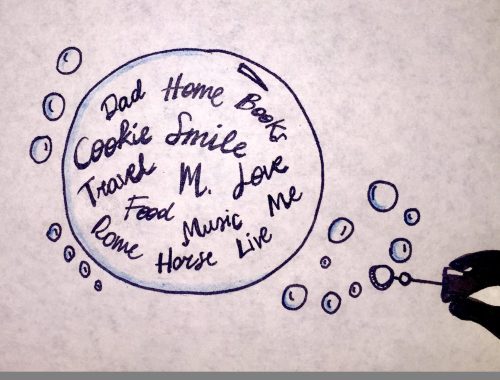 Dad Home Books
Cookie Smile
Travel M. Love
Food Music Me
Rome Horse Live